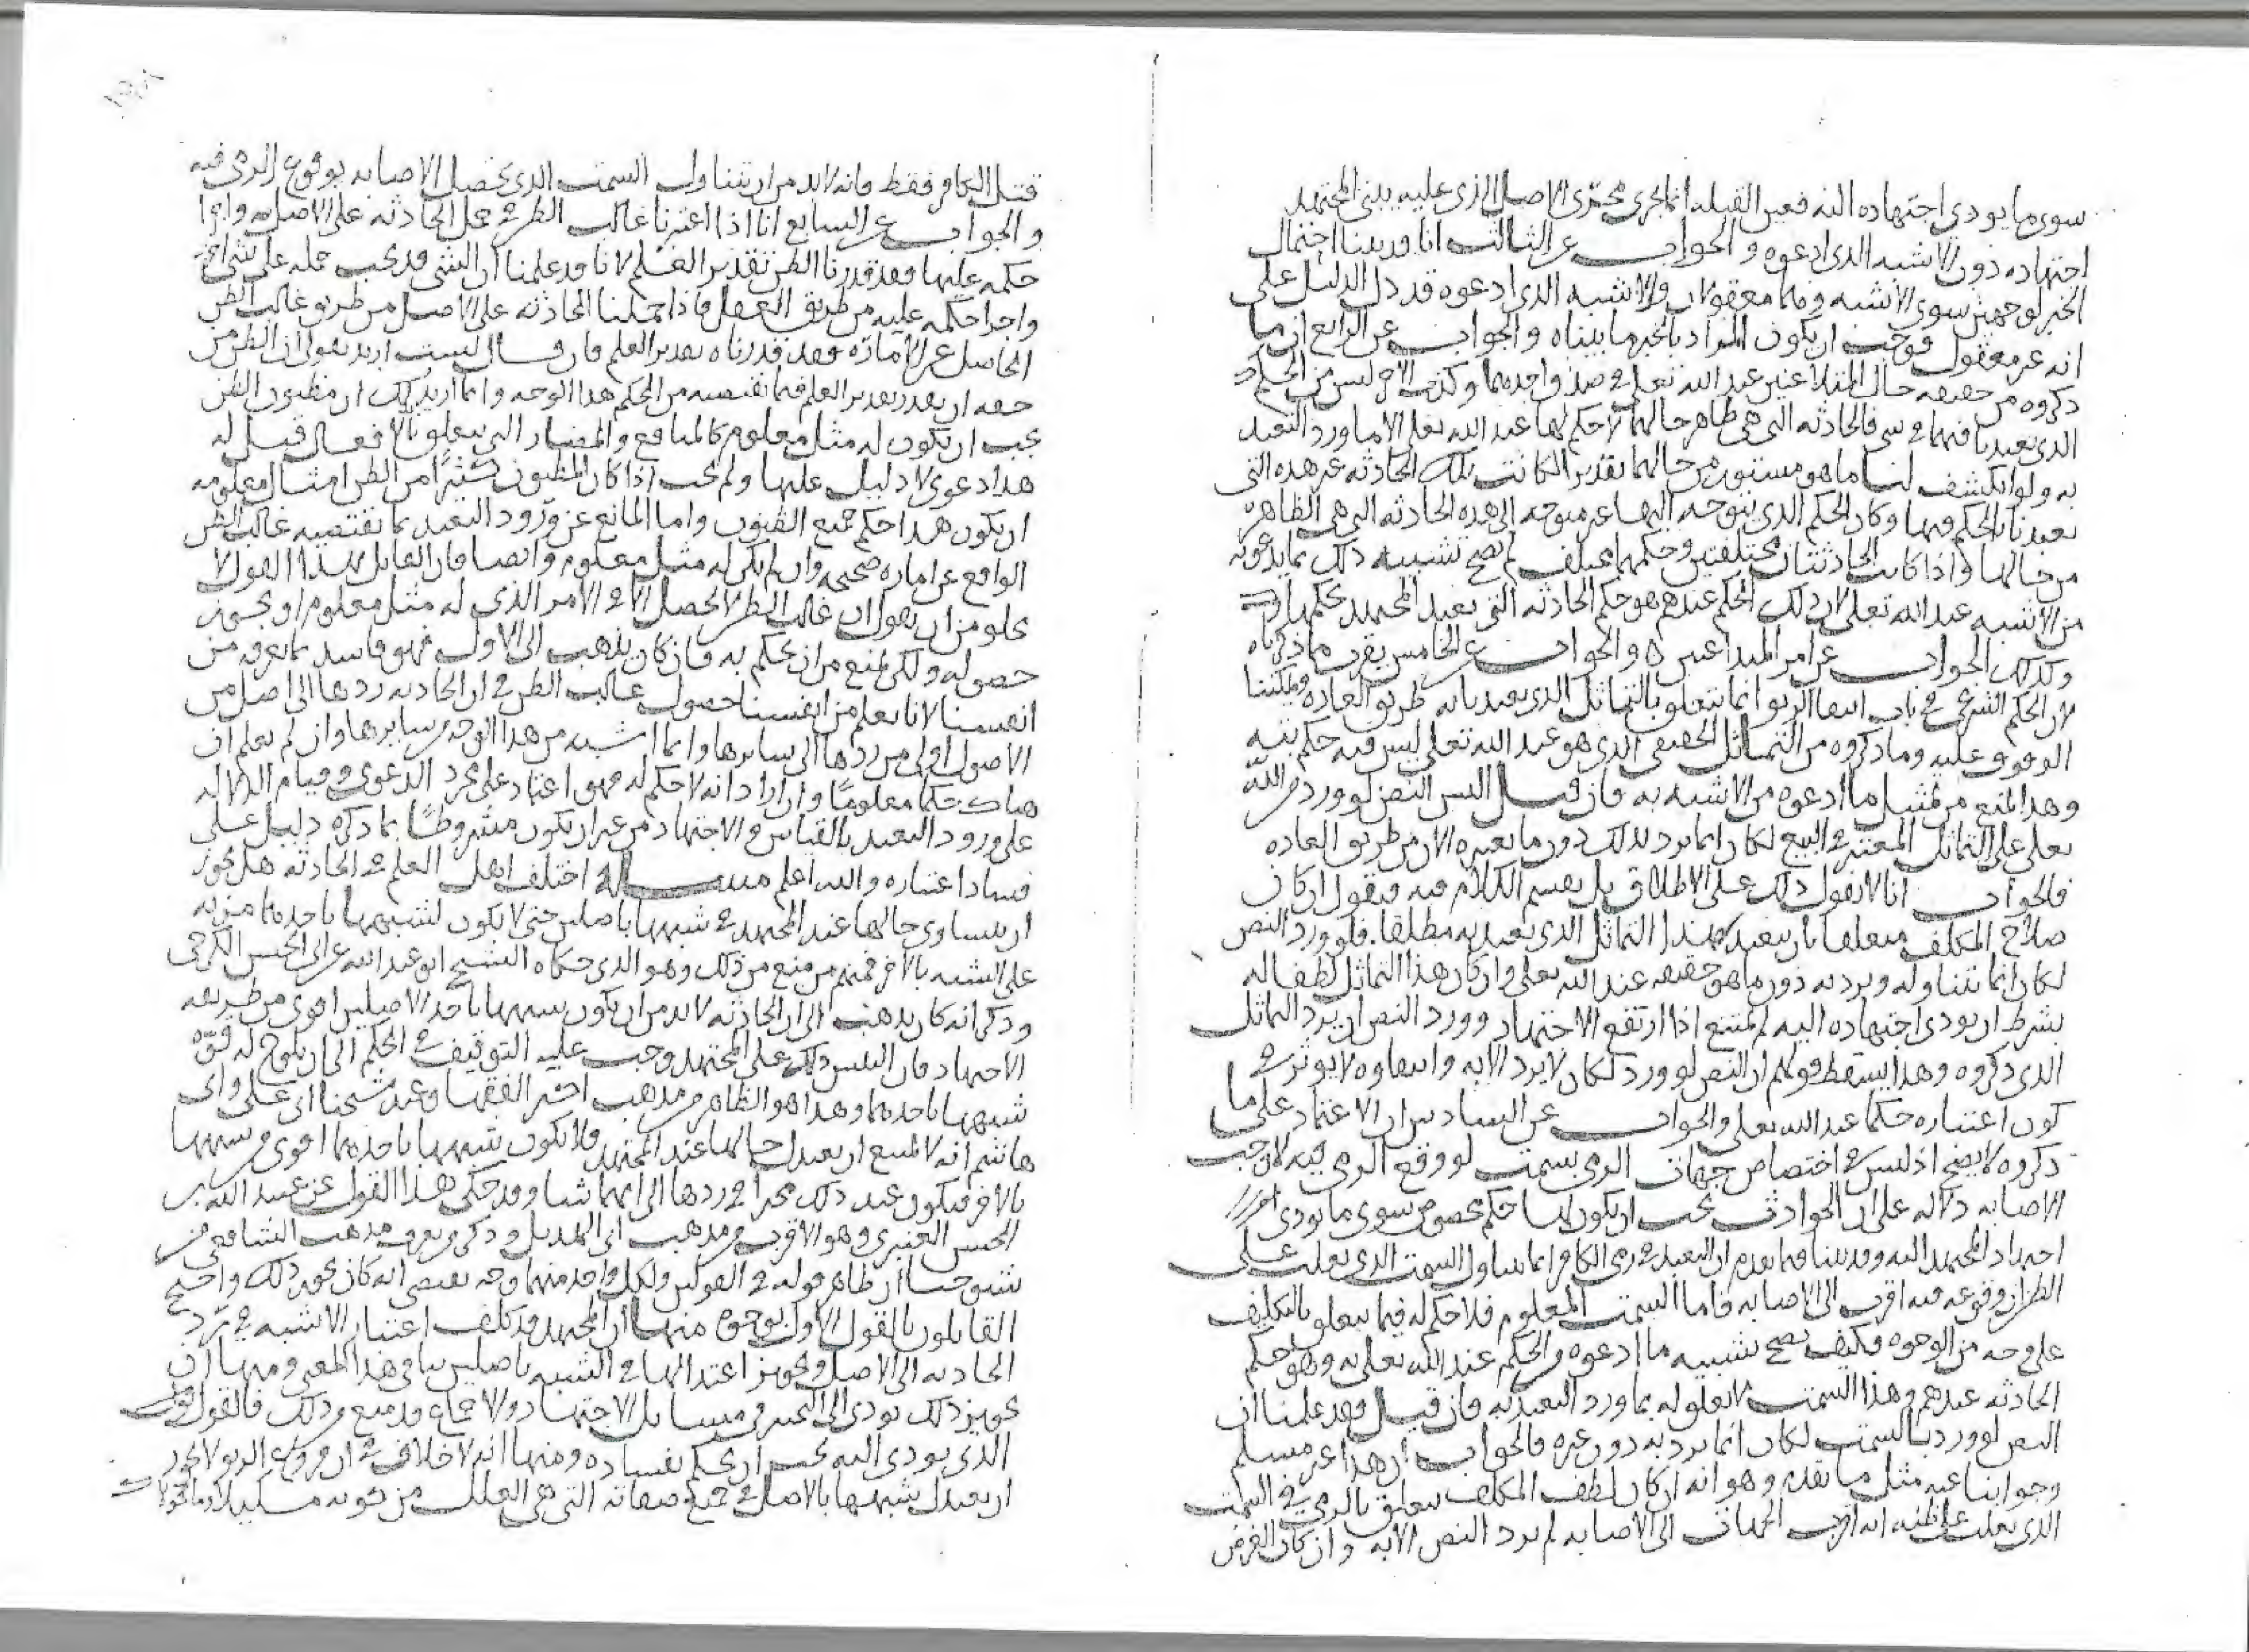 سوى ما يودى اجتهاده اليه فعين القبله انما يجرى مجرى الاصل الذى عليه يبنى المجتهد
اجتهاده دون الاشبه الذى ادعوه والجواب عن الثالث انا قد بينا احتمال
الخبر لوجهين سوى الاشبه وهما معقولان والاشبه الذى ادعوه قد دل الدليل على
انه غير معقول فوجب ان يكون المراد بالخبر ما بيناه والجواب عن الرابع ان ما
ذكروه من حقيقه حال المتلاعنين عند الله تعلى فى صدق احدهما وكذب الاخر ليس من الحكم
الذى تعبدنا فيهما فى شى فالحادثه التى هى ظاهر حالهما لا حكم لها عند الله تعلى الا ما ورد التعبد
به ولو انكشف لنا ما هو مستور من حالهما بقدير لكانت تلك الحادثه غير هذه التى
تعبدنا بالحكم فيها وكان الحكم الذى يتوجه اليها غير متوجه الى هذه الحادثه التى هى الظاهره
من حالهما واذا كانت الحادثتان مختلفتين وحكمهما مختلف لم يصح تشبيه ذلك بما يدعونه
من الاشبه عند الله تعلى لان ذلك الحكم عندهم هو حكم الحادثه التى تعبد المجتهد بحكمها
وكذلك الجواب عن امر المتداعيين والجواب عن الخامس يقرب ما ذكرناه
لان الحكم الشرعى فى باب الربوا انما يتعلق بالتماثل الذى تعبدنا به طريق العاده ويمكننا
الوقوف عليه وما ذكروه من التماثل الحقيقى الذى هو عند الله تعلى ليس فيه حكم بته
وهذا المنع من تمثيل ما ادعوه من الاشبه به فان قيل اليس النص لو ورد من الله
تعلى على التماثل المعتبر فى البيع لكان انما يرد بذلك دون ما نعتبره الان من طريق العاده
فالجواب انا لا نقول ذلك على الاطلاق بل نقسم الكلام فيه فنقول ان كان
صلاح المكلف متعلقا بان يتعبد بهذا التماثل الذى تعبد به مطلقا فلو ورد النص
لكان انما يتناوله ويرد به دون ما هو حقيقه عند الله تعلى وان كان هذا التماثل لطفا له
بشرط ان يودى اجتهاده اليه لم يمتنع اذا ارتفع الاجتهاد وورد النص ان يرد التماثل
الذى ذكروه وهذا يسقط قولهم ان النص لو ورد لكان لا يرد الا به وانتفاوه لا يوثر فى
كون اعتباره حكما عند الله تعلى والجواب عن السادس ان الاعتماد على ما
ذكروه لا يصح اذ ليس فى اختصاص جهات الرمى بسمت لو وقع الرمى فيه لوجب
الاصابه دلاله على ان الحوادث يجب ان يكون لها حكم مخصوص سوى ما يودى
اجتهاد المجتهد اليه وقد بينا فيما تقدم ان التعبد فى رمى الكافر انما يتناول السمت الذى يغلب على
الظن ان وقوعه فيه اقرب الى الاصابه فاما السمت المعلوم فلا حكم له فيما يتعلق بالتكليف
على وجه من الوجوه فكيف يصح تشبيه ما ادعوه من الحكم عند الله تعلى به وهو حكم
الحادثه عندهم وهذا السمت لا تعلق له بما ورد التعبد به فان قيل فقد علمنا ان
النص لو ورد بالسمت لكان انما يرد به دون غيره فالجواب ان هذا غير مسلم
وجوابنا عنه مثل ما تقدم وهو انه ان كان لطف المكلف يتعلق بالرمى فى السمت
الذى يغلب على ظنه انه اقرب الجهات الى الاصابه لم يرد النص الا به وان كان الغرض
قتل الكافر فقط فانه لابد من ان يتناول السمت الذى يحصل الاصابه بوقوع الرمى فيه
والجواب عن السابع انا اذا اعتبرنا غالب الظن فى حمل الحادثه على الاصل واجرا
حكمه عليها فقد قدرنا الظن تقدير العلم لانا قد علمنا ان الشى قد يجب حمله على شى اخر
واجرا حكمه عليه من طريق العقل فاذا حملنا الحادثه على الاصل من طريق غالب الظن
الحاصل عن الاماره فقد قدرناه تقدير العلم فان قال لست اريد بقولى ان الظن من
حقه ان يقدر تقدير العلم فيما تقتضيه من الحكم هذا الوجه وانما اريد بذلك ان مظنون الظن
يجب ان يكون له مثل معلوم كالمنافع والمضار التى تتعلق بالافعال قيل له
هذا دعوى لا دليل عليها ولم يجب اذا كان المظنون كثيرا من الظن امثال معلومه
ان يكون هذا حكم جميع الظنون واما المانع عن ورود التعبد بما تقتضيه غالب الظن
الواقع عن اماره صحيحه وان لم يكن له مثل معلوم وايضا فان القايل بهذا القول لا
يخلو من ان يقول ان غالب الظن لا يحصل الا فى الامر الذى له مثل معلوم او يجوز
حصوله ولكن يمنع من ان يحكم به فان كان يذهب الى الاول فهو فاسد بما نعرفه من
انفسنا لانا نعلم من انفسنا حصول غالب الظن فى ان الحادثه ردها الى اصل من
الاصول اولى من ردها الى سايرها وانها اشبه من هذا الوجه من سايرها وان لم نعلم ان
هناك حكما معلوما وان اراد انه لا حكم له فهو اعتماد على مجرد الدعوى وقيام الدلاله
على ورود التعبد بالقياس والاجتهاد من غير ان يكون مشروطا بما ذكره دليل على
فساد اعتباره والله اعلم مسالة اختلف اهل العلم فى الحادثه هل يجوز
ان يتساوى حالها عند المجتهد فى شبهها باصلين حتى لا يكون لشبهها باحدهما مزيه
على الشبه بالاخر فمنهم من منع من ذلك وهو الذى حكاه الشيخ ابو عبد الله عن ابى الحسن الكرخى
وذكر انه كان يذهب الى ان الحادثه لابد من ان يكون شبهها باحد الاصلين اقوى من طريقه
الاجتهاد فان التبس ذلك على المجتهد وجب عليه التوقيف فى الحكم الى ان يلوح له قوه
شبهها باحدهما وهذا هو الظاهر من مذهب اكثر الفقها وعند شيخنا ابى على وابى
هاشم انه لا يمتنع ان يعتدل حالها عند المجتهد فلا يكون شبهها باحدهما اقوى من شبهها
بالاخر فيكون عند ذلك مخيرا فى ردها الى ايهما شا وقد حكى هذا القول عن عبيد الله بن
الحسن العنبرى وهو الاقرب من مذهب ابى الهذيل وذكر من يعرف مذهب الشافعى من
شيوخنا ان ظاهر قوله فى القولين ولكل واحد منهما وجه يقتضى انه كان يجوز ذلك واحتج
القايلون بالقول الاول بوجوه منها ان المجتهد قد كلف اعتبار الاشبه فى رد
الحادثه الى الاصل وتجويز اعتدالها فى الشبه باصلين ينافى هذا المعنى ومنها ان
تجويز ذلك يودى الى التخيير فى مسايل الاجتهاد والاجماع قد منع من ذلك فالقول
الذى يودى اليه يجب ان يحكم بفساده ومنها انه لا خلاف فى ان فروع الربو لا يجوز
ان يعتدل شبهها بالاصل فى جميع صفاته التى هى العلل من كونه مكيلا وماكولا
١٩٨